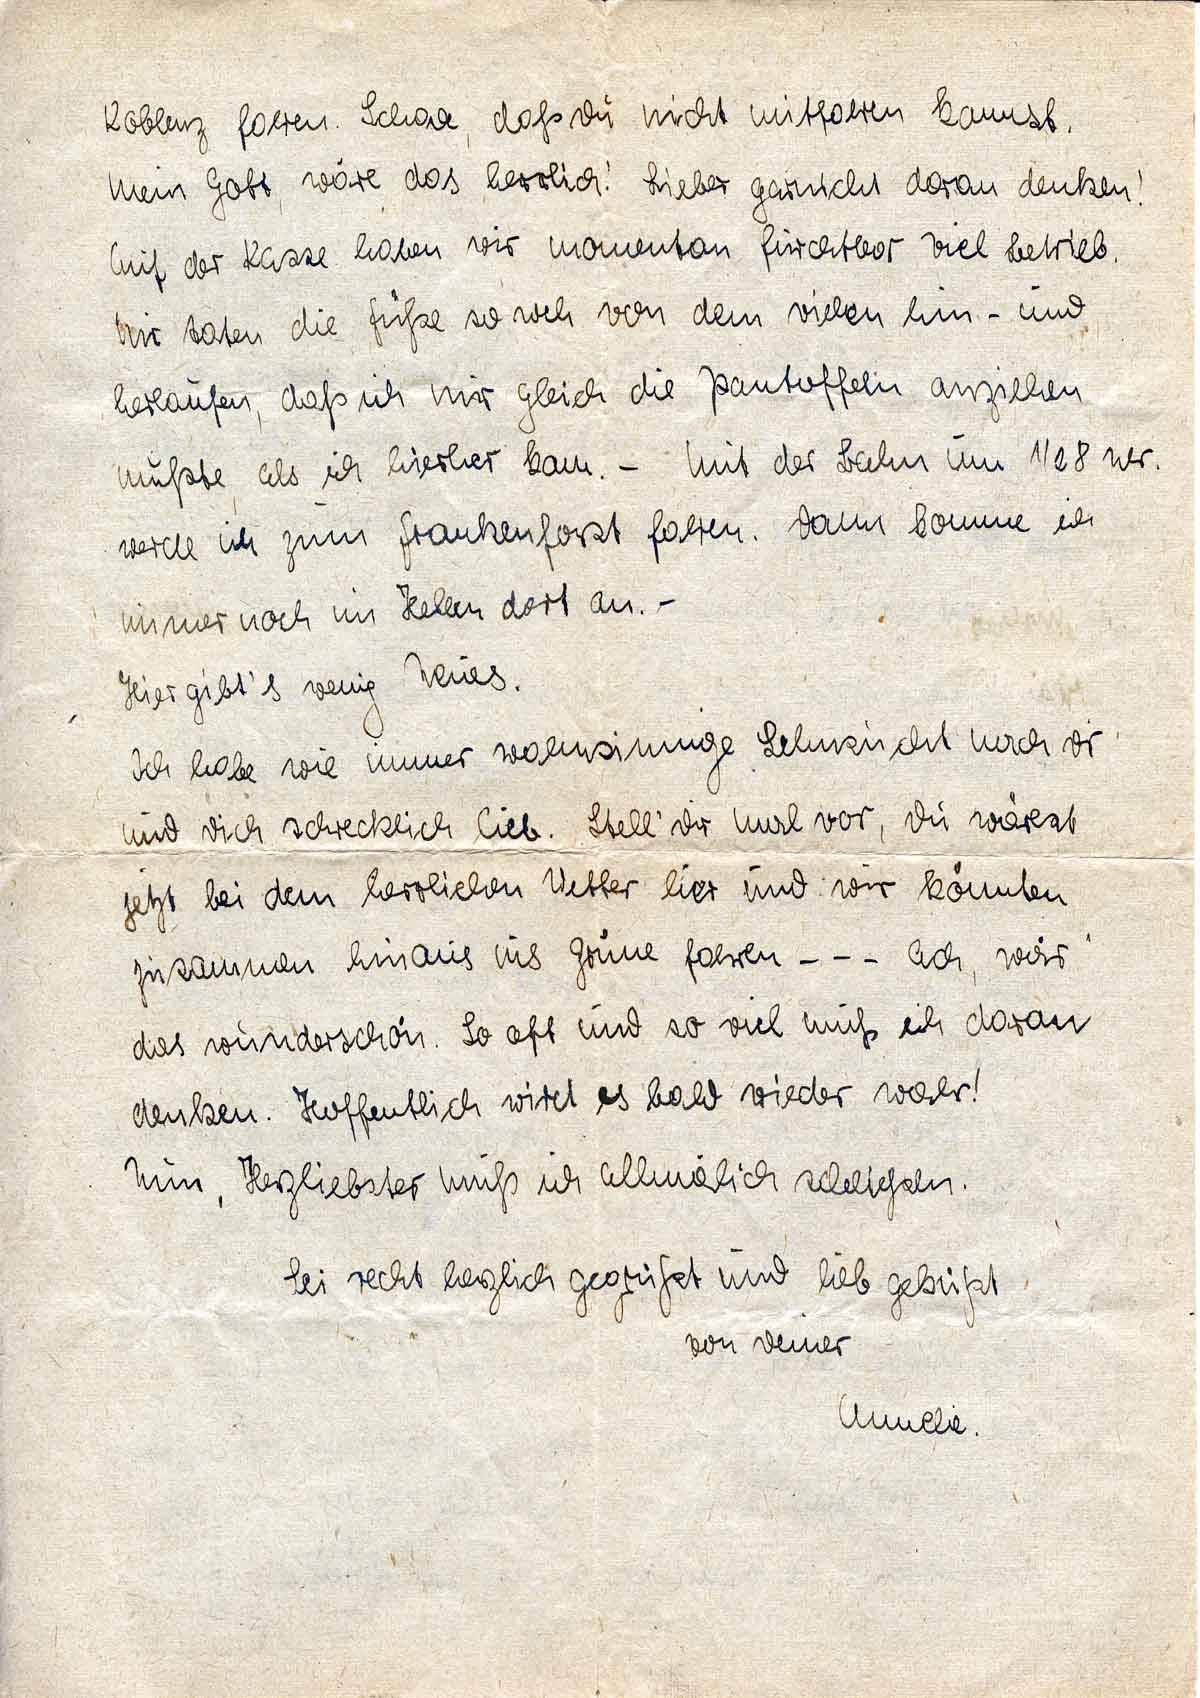 Koblenz fahren. Schade, daß du nicht mitfahren kannst.
Mein Gott, wäre das herrlich! Lieber garnicht daran denken!
Auf der Kasse haben wir momentan furchtbar viel Betrieb.
Mir taten die Füße so weh von dem vielen hin- und
herlaufen, daß ich mir gleich die Pantoffeln anziehen
mußte, als ich hierher kam. - Mit der Bahn um 1/28 Uhr.
werde ich zum Frankenforst fahren. Dann komme ich
immer noch im Hellen dort an. -
Hier gibt's wenig Neues.
Ich habe wie immer wahnsinnige Sehnsucht nach dir
und dich schrecklich lieb. Stell' dir mal vor, du wärest
jetzt bei dem herrlichen Wetter hier und wir könnten
zusammen hinaus ins Grüne fahren - - - Ach, wär'
das wunderschön. So oft und so viel muß ich daran
denken. Hoffentlich wird es bald wieder wahr!
Nun, Herzliebster muß ich allmälich schließen.
Sei recht herzlich gegrüßt und lieb geküßt
von deiner
Annelie.